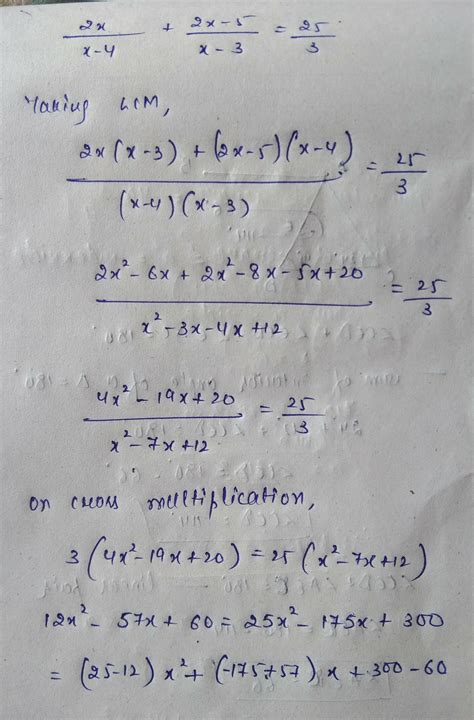 2x/(x-4) + (2x-5)/(x-3) = 25/3
Taking LCM,
(2x(x-3) + (2x-5)(x-4))/((x-4)(x-3)) = 25/3
(2x²-6x+2x²-8x-5x+20)/(x²-3x-4x+12) = 25/3
(4x²-19x+20)/(x²-7x+12) = 25/3
On cross multiplication,
3(4x²-19x+20) = 25(x²-7x+12)
12x²- 57x + 60 = 25x²- 175x + 300
= (25-12)x²+(-175+57)x + 300-60